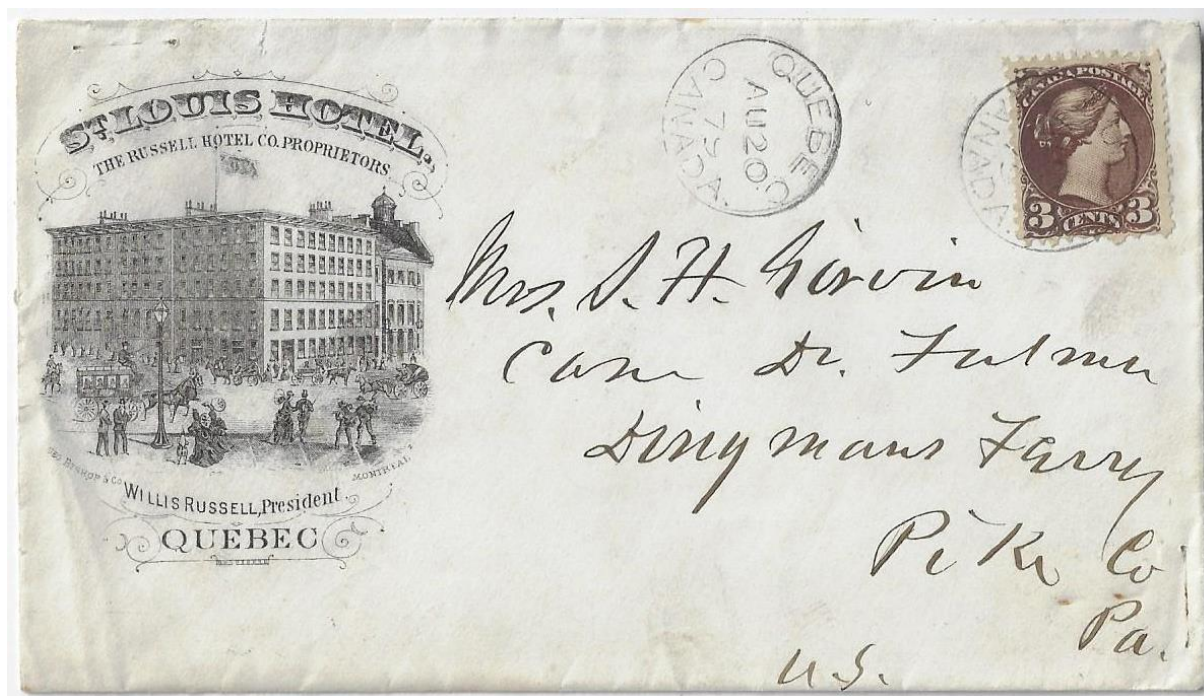 ST. LOUIS HOTEL.
THE RUSSELL HOTEL CO. PROPRIETORS
GEO BISHOP & CO
MONTREAL
WILLIS RUSSELL, President.
QUEBEC
QUEBEC
AU 20
CANADA
CANADA POSTAGE
3 CENTS 3
Mrs. S. H.
Dr.
Dingmans Farry
Pike Co
Pa.
U.S.